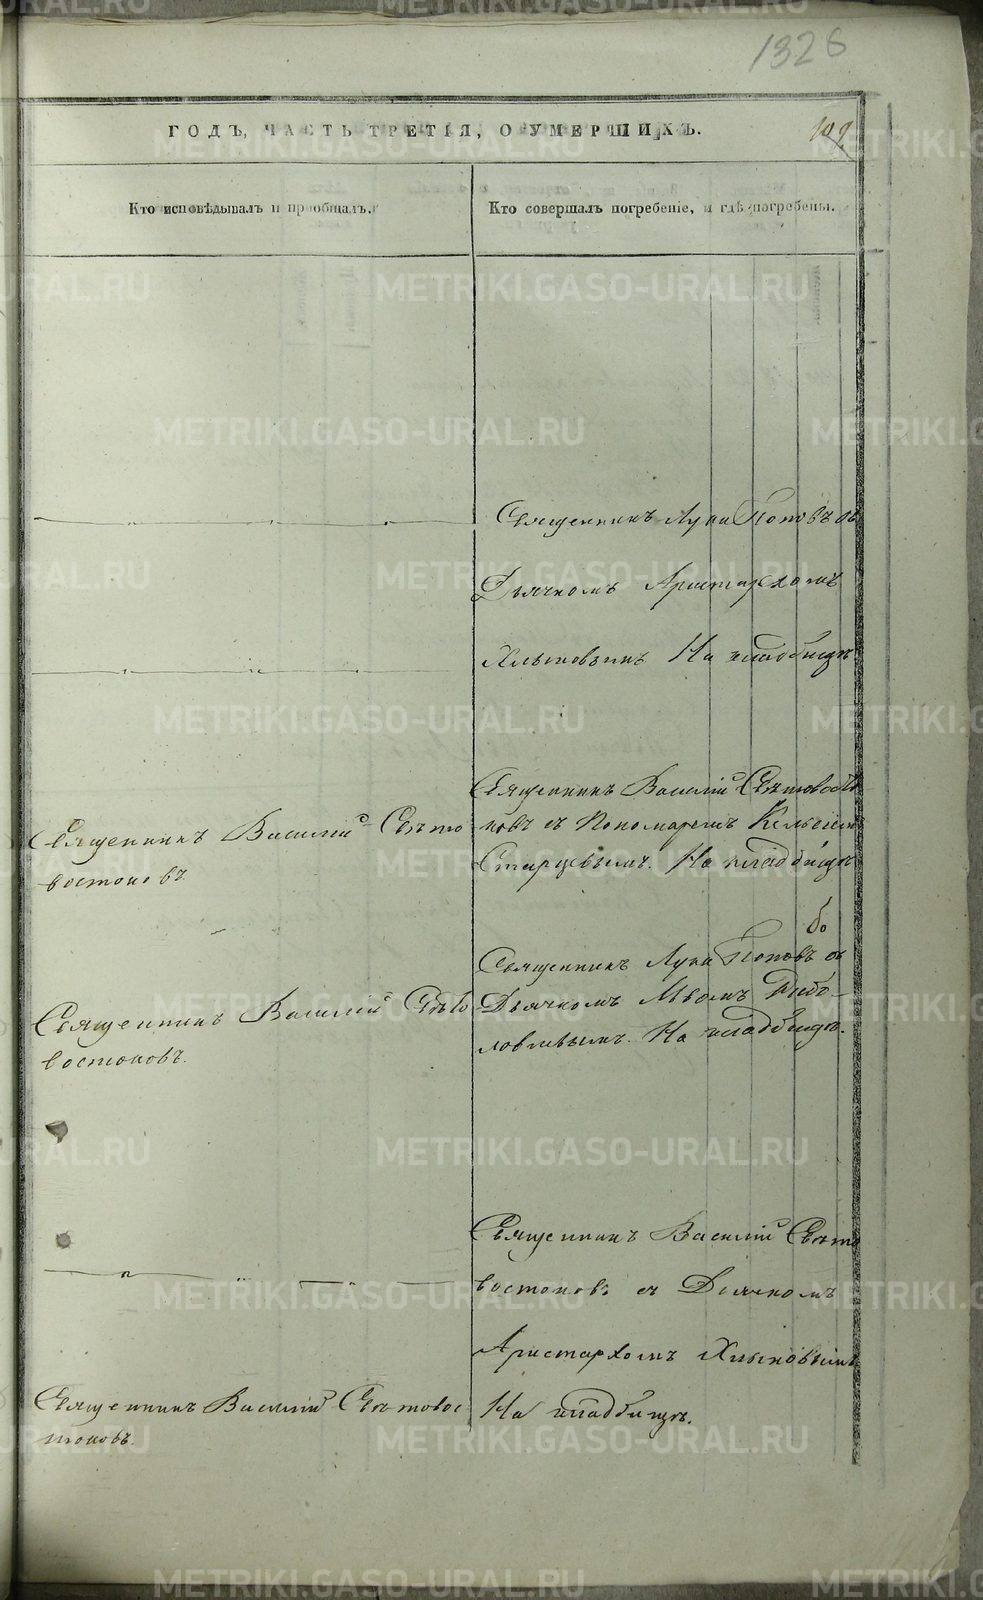 1326
ГОДЪ, ЧАСТЬ ТРЕТІЯ, О УМЕРШИХЪ.
109
Кто исповѣдывалъ и пріобщалъ.
Кто совершалъ погребеніе, и гдѣ погребены.
Священникъ Лука Поповъ съ
Дьячкомъ Аристархомъ
Хлыновымъ На кладбищѣ
Священникъ Василій Свѣто
востоковъ.
Священникъ Василій Свѣтовосто
ковъ съ Пономаремъ
Старцевымъ. На кладбищѣ
Священникъ Василій Свѣто
востоковъ.
Священникъ Лука Поповъ съ
Дьячкомъ Львомъ
На кладбищѣ.
Священникъ Василій Свѣто
востоковъ съ Дьячкомъ
Аристархомъ Хлыновымъ
На кладбищѣ.
Священникъ Василій Свѣтовос
токовъ.
METRIKI.GASO-URAL.RU